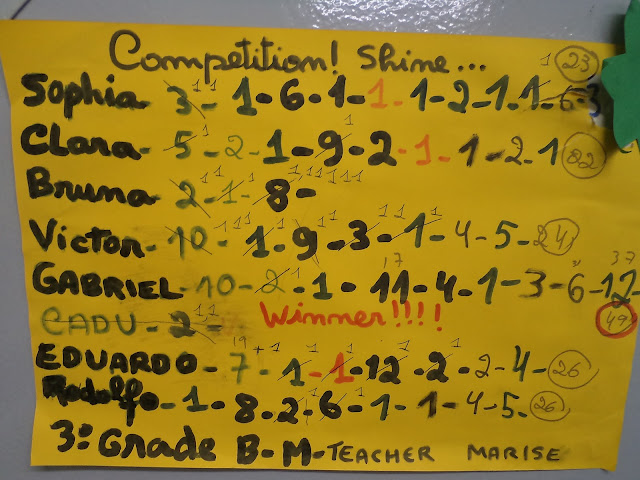 Competition! Shine... 23
Sophia - 3 - 1 - 6 - 1 - 1 - 1 - 2 - 1 - 1 - 6 - 3
Clara - 5 - 2 - 1 - 9 - 2 - 1 - 1 - 2 - 1 82
Bruna 2 - 1 - 8 -
Victor - 10 - 1 - 9 - 3 - 1 - 4 - 5 - 24
GABRIEL - 10 - 2 - 1 - 11 - 4 - 1 - 3 - 6 - 12 -
CADU - 2 - Winner!!!! 49
EDUARDO - 7 + 1 - 1 - 1 - 12 - 2 - 2 - 4 - 26
Rodolfo - 1 - 8 - 2 - 6 - 1 - 1 - 4 - 5 - 26
3º Grade B - M - TEACHER MARISE